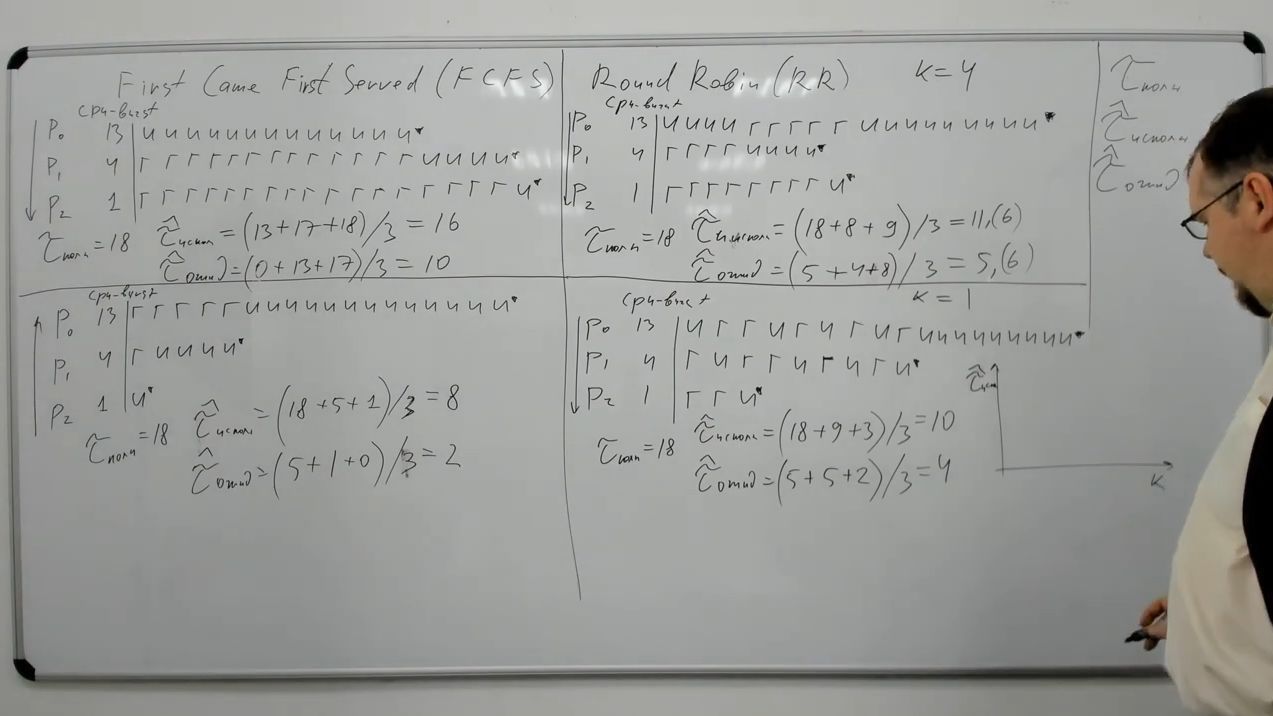 First Came First Served (FCFS)
cpu-burst
P₀ 13 и и и и и и и и и и и и и
P₁ 4 Г Г Г Г Г Г Г Г Г Г Г Г Г и и и и
P₂ 1 Г Г Г Г Г Г Г Г Г Г Г Г Г Г Г Г Г и
τполн=18 τ̂исполн=(13+17+18)/3=16
τ̂ожид=(0+13+17)/3=10
cpu-burst
P₀ 13 Г Г Г Г Г и и и и и и и и и и и и и
P₁ 4 Г и и и и
P₂ 1 и
τполн=18 τ̂исполн=(18+5+1)/3=8
τ̂ожид=(5+1+0)/3=2
Round Robin (RR) K=4
cpu-burst
P₀ 13 и и и и Г Г Г Г Г и и и и и и и и и
P₁ 4 Г Г Г Г и и и и
P₂ 1 Г Г Г Г Г Г Г Г и
τполн=18 τ̂исполн=(18+8+9)/3=11,(6)
τ̂ожид=(5+4+8)/3=5,(6)
K=1
cpu-burst
P₀ 13 и Г Г и Г и Г и Г и и и и и и и и и
P₁ 4 Г и Г Г и Г и Г и
P₂ 1 Г Г и
τполн=18 τ̂исполн=(18+9+3)/3=10
τ̂ожид=(5+5+2)/3=4
K
τполн
τ̂исполн
τ̂ожид